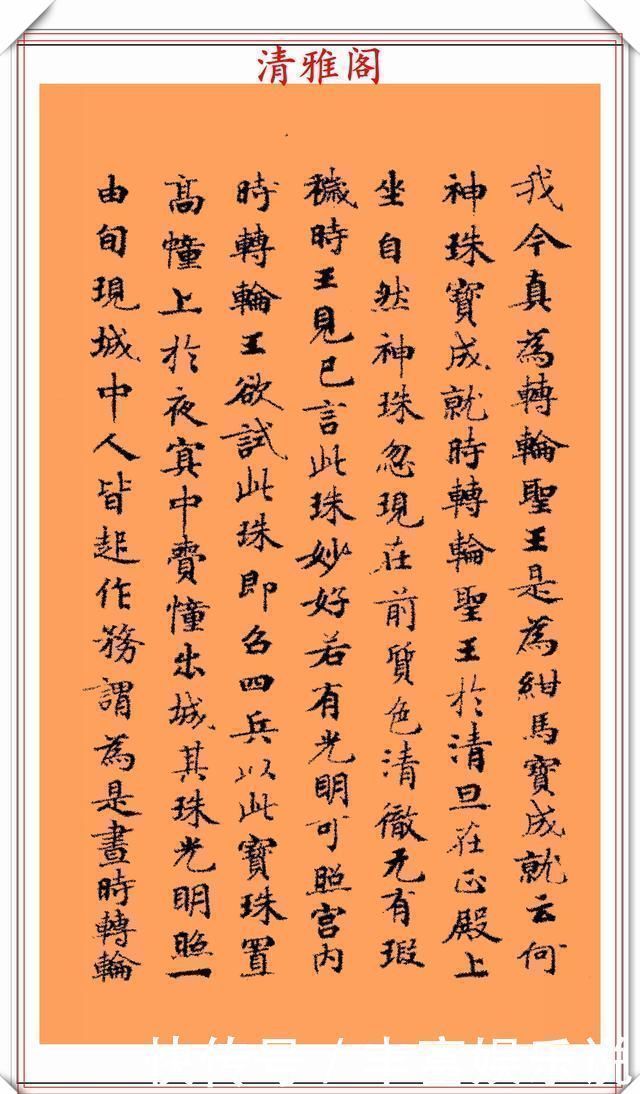 清雅阁
我今真為轉輪聖王是為紺馬寶成就云何
神珠寶成就時轉輪聖王於清旦在正殿上
坐自然神珠忽現在前質色清徹无有瑕
穢時王見已言此珠妙好若有光明可照宫内
時轉輪王欲試此珠即召四兵以此寶珠置
高幢上於夜冥中賷幢出城其珠光明照一
由旬現城中人皆起作務謂為是晝時轉輪